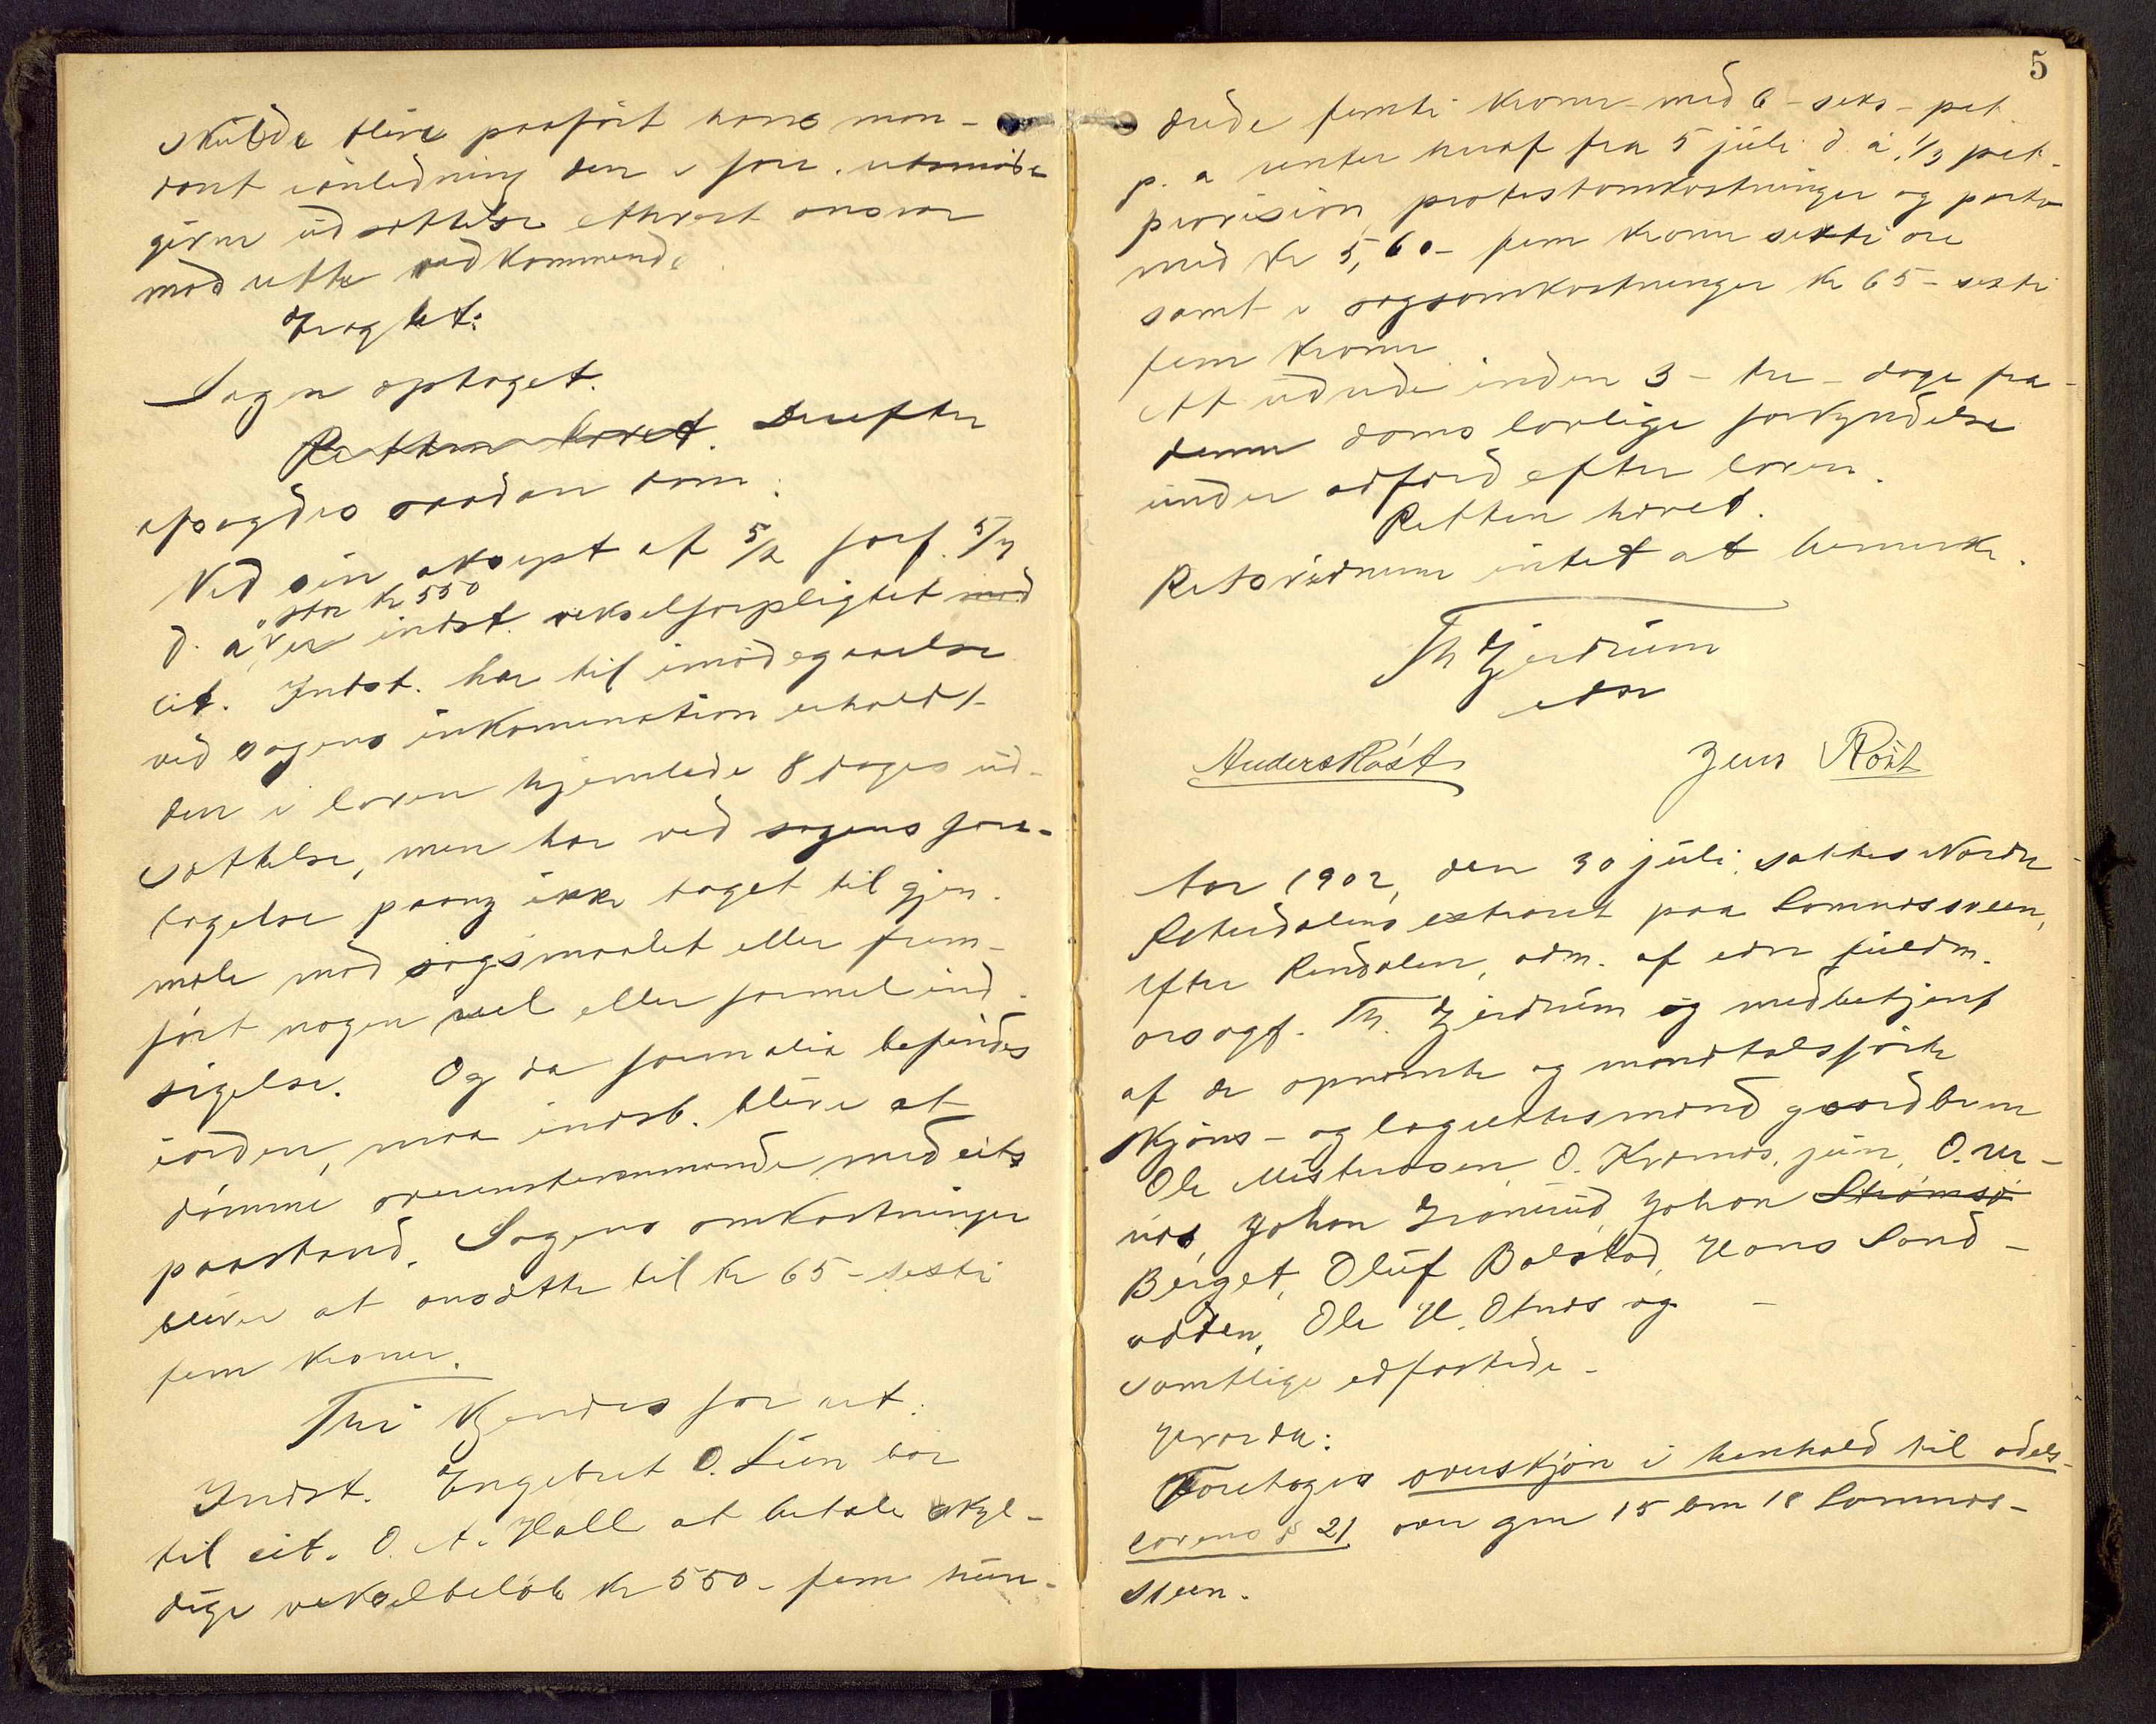 skulde blive paaført hans man-
dant i anledning den i forr. retsmøde
givne udsættelse ethvert ansvar
mod rette vedkommende.
Fragaet:
Sagen optaget.
Retten hævet. Derefter
afsagdes saadan dom:
Ved sin aksept af 5/2 forf. 5/7
stor kr 550
d. a. er indst. vekselforpligtet mod
cit. Indst. har til imødegaaelse
ved sagens inkamination erholdt
den i loven hjemlede 8 dages ud-
sættelse, men har ved sagens fore-
tagelse paany ikke taget til gjen-
mæle mod søgsmaalet eller frem-
ført nogen reel eller formel ind-
sigelse. Og da formalia befindes
iorden, maa indst. blive at
dømme overensstemmende med cits
paastand. Sagens omkostninger
bliver at ansætte til kr 65 - sexti
fem kroner.
Thi kjendes for ret:
Indst. Engebret O. Lien bør
til cit. O. A. Hall at betale skyl-
dige vekselbeløb kr 550 - fem hun-
5
drede femti kroner - med 6 - seks - pct.
p. a renter heraf fra 5 juli d. a. 1/3 pct.
provision, protestomkostninger og porto
med kr 5,60 - fem kroner sexti øre
samt i sagsomkostninger kr 65 - sexti
fem kroner
At udrede inden 3 - tre - dage fra
denne doms lovlige forkyndelse
under adfærd efter loven.
Retten hævet.
Retsvidnerne intet at bemerke.
Th Gjerdrum
edsv
Anders Røst
Jens Røst
Aar 1902, den 30 juli, sattes Nordre
Østerdalens extraret paa Lomnessveen,
Øfre Rendalen, adm. af edsv fuldm.
ors. sagf. Th. Gjerdrum og medbetjent
af de opnævnte og mandtalsførte
skjøns- og lagrettesmænd gaardbrugere
Ole Misterosen, O. Kværnes, jun, O. Ber-
nes, Johan Grønerud, Johan Strømsø
Berget, Oluf Bolstad, Hans Sand-
odden, Ole H. Otnes og -
samtlige edfæstede -
Hvorda:
Foretages overskjøn i henhold til odels-
lovens § 21 over gno 15 bno 18 Lomnes-
sveen.